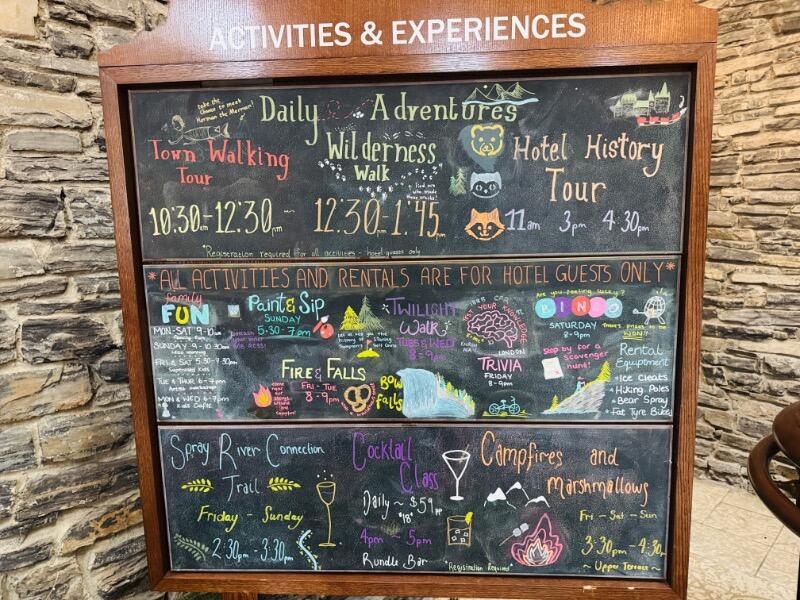 ACTIVITIES & EXPERIENCES
Daily Adventures
take the
chance to meet
Herman the Merman!
Town Walking
Tour
10:30am-12:30pm
Wilderness
Walk
12:30-1:45pm
Hotel History
Tour
11am 3pm 4:30pm
*Registration required for all activities - hotel guests only
*ALL ACTIVITIES AND RENTALS ARE FOR HOTEL GUESTS ONLY*
family
FUN
MON-SAT 9-10am
SUNDAY 9-10:30am
FRI & SAT 5:30-7:30pm
TUE & THUR 6-7pm
MON & WED 6-7pm
Kids Crafts
Paint & Sip
SUNDAY
5:30-7pm
FIRE & FALLS
FRI-TUE
8-9pm
BOW
FALLS
TWILIGHT
Walk
TUES & WED
8-9pm
TEST YOUR KNOWLEDGE
LONDON
TRIVIA
FRIDAY
8-9pm
Are you feeling lucky?
BINGO
SATURDAY
8-9pm
There's prizes to be
WON!
Stop by for a
scavenger
hunt!
Rental
Equiptment
*Ice Cleats
*Hiking Poles
*Bear Spray
*Fat Tyre Bikes
Spray River Connection
Trail
Friday - Sunday
2:30pm-3:30pm
Cocktail
Class
Daily ~ $59pp
*18+
4pm - 5pm
Rundle Bar
*Registration Required*
Campfires and
Marshmallows
Fri - Sat - Sun
3:30pm-4:30pm
~ Upper Terrace ~